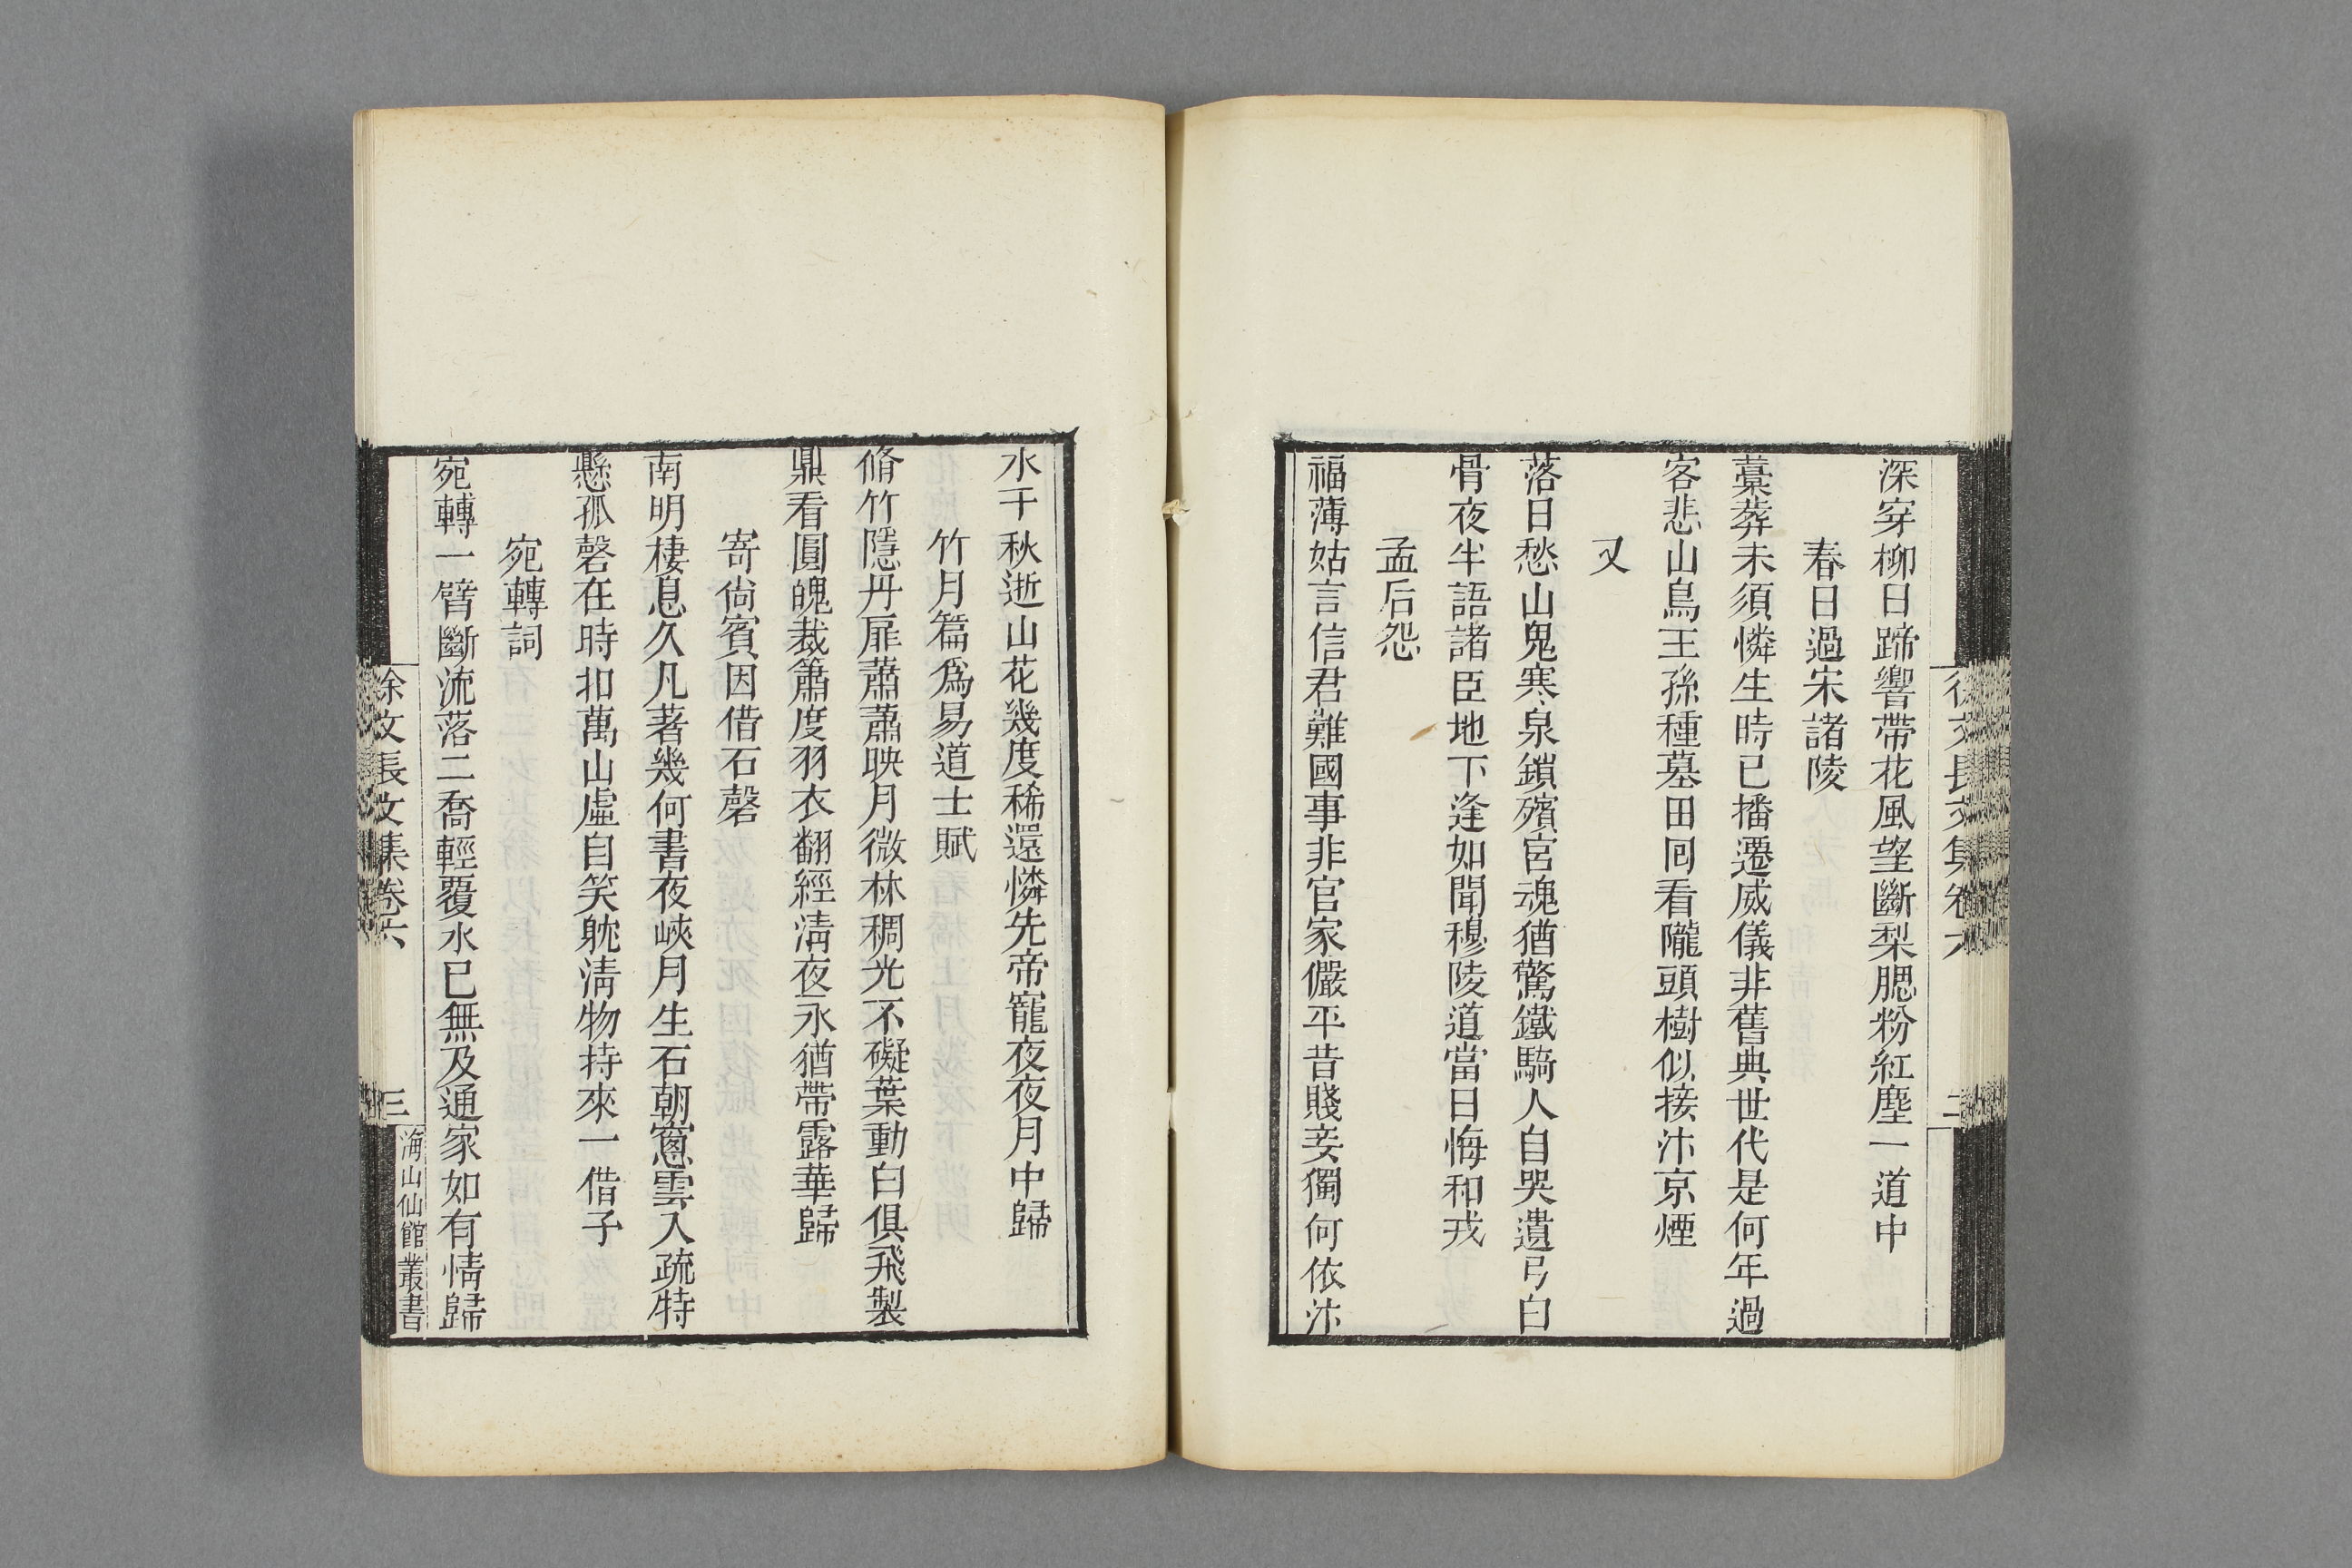 徐文長文集卷六
二
深穿柳日蹄響帶花風望斷梨腮粉紅塵一道中
春日過宋諸陵
藁葬未須憐生時已播遷威儀非舊典世代是何年過
客悲山鳥王孫種墓田囘看隴頭樹似接汴京煙
又
落日愁山鬼寒泉鎖殯宮魂猶驚鐵騎人自哭遺弓白
骨夜半語諸臣地下逢如聞穆陵道當日悔和戎
孟后怨
福薄姑言信君難國事非官家儼平昔賤妾獨何依汴
水千秋逝山花幾度稀還憐先帝寵夜夜月中歸
竹月篇爲易道士賦
脩竹隱丹扉蕭蕭映月微林稠光不礙葉動白俱飛製
鼎看圓魄裁簫度羽衣翻經淸夜永猶帶露華歸
寄尙賓因借石磬
南明棲息久凡著幾何書夜峽月生石朝窻雲入疏特
懸孤磬在時扣萬山虛自笑躭淸物持來一借子
宛轉詞
宛轉一臂斷流落二喬輕覆水已無及通家如有情歸
徐文長文集卷六
三
海山仙館叢書